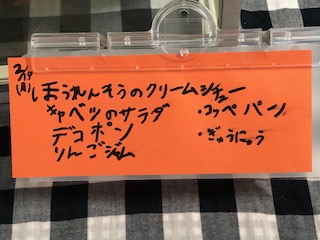 2/19
(月)
ほうれんそうのクリームシチュー
キャベツのサラダ
・コッペパン
デコポン
・ぎゅうにゅう
りんごジャム